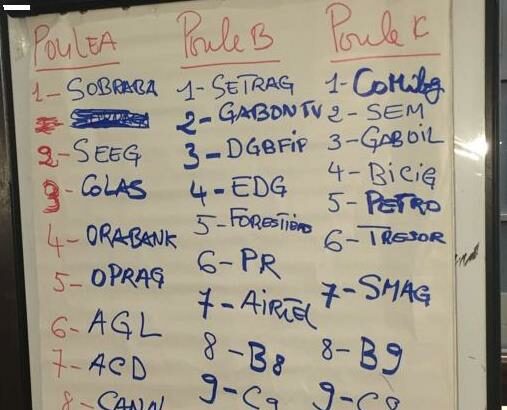 POULE A
1- SOBRABA
2- SEEG
3- COLAS
4- ORABANK
5- OPRAG
6- AGL
7- ACD
8- CANAL
Poule B
1- SETRAG
2- GABONTV
3- DGBFIP
4- EDG
5- FORESTIERS
6- PR
7- AIRTEL
8- B8
9- C9
Poule C
1- COMILOG
2- SEM
3- GABOIL
4- BICIG
5- PETRO
6- TRESOR
7- SMAG
8- B9
9- C8